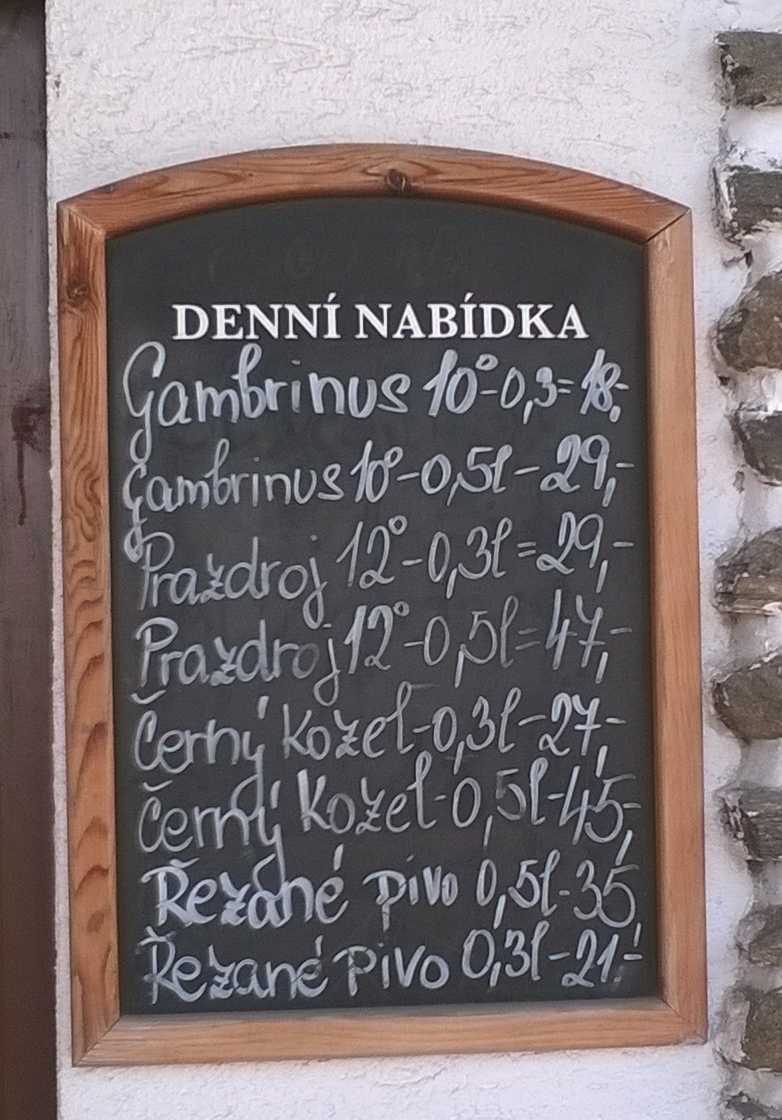 DENNÍ NABÍDKA
Gambrinus 10°-0,3=18,-
Gambrinus 10°-0,5l-29,-
Prazdroj 12°-0,3l=29,-
Prazdroj 12°-0,5l=47,-
Černý Kozel-0,3l-27,-
Černý Kozel-0,5l-45,-
Řezané pivo 0,5l-35
Řezané pivo 0,3l-21.-